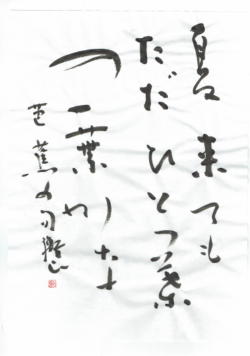 夏来ても
ただひとつ葉
の一葉かな
芭蕉の句